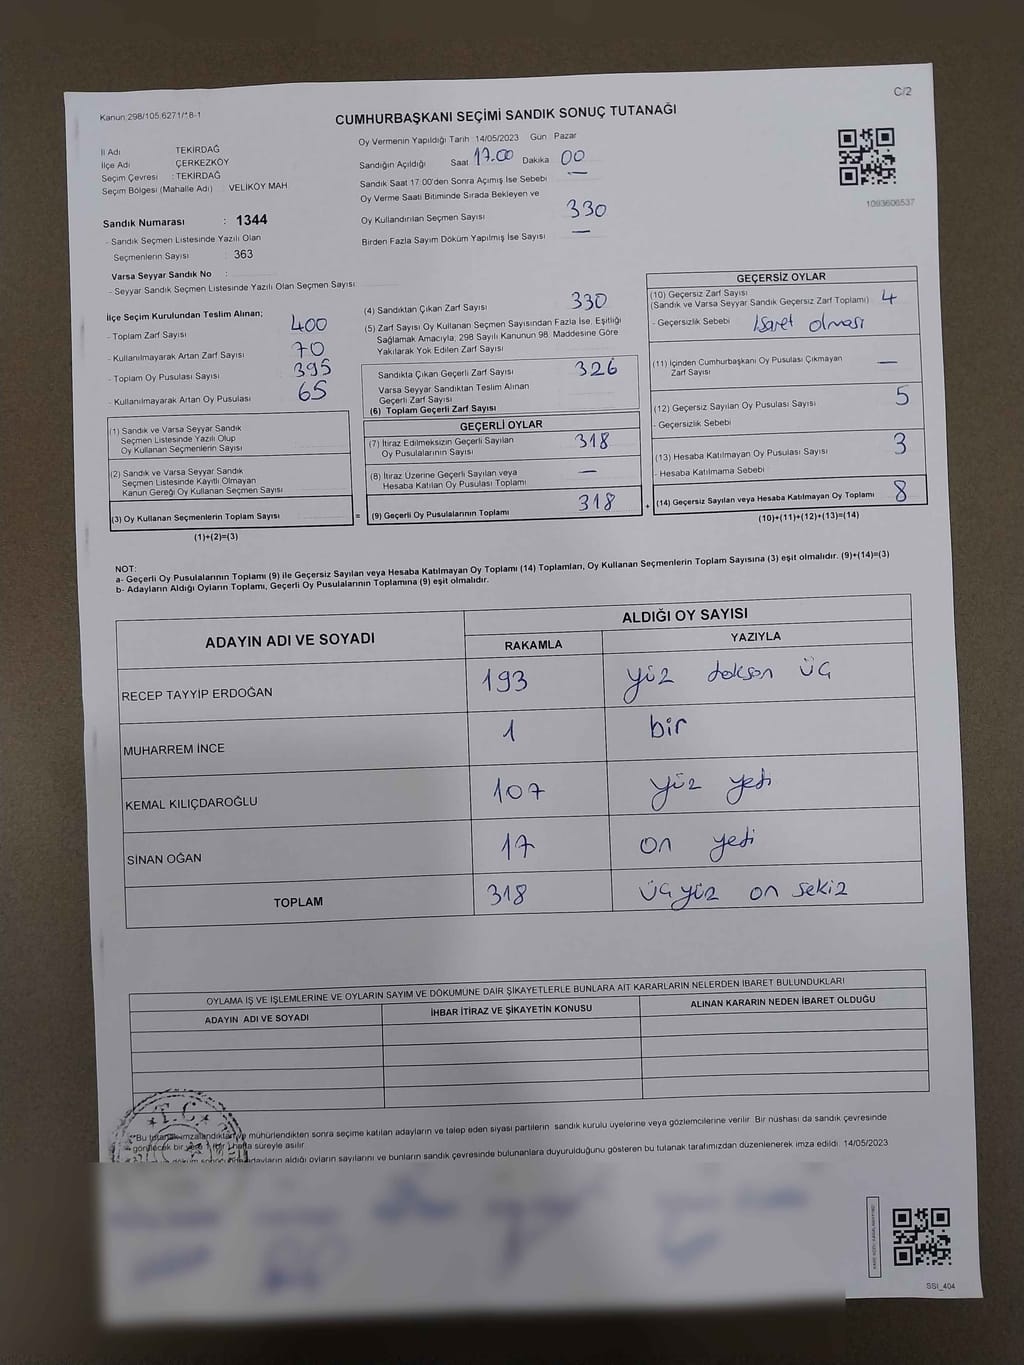 Kanun:298/105 6271/18-1
C/2
CUMHURBAŞKANI SEÇİMİ SANDIK SONUÇ TUTANAĞI
İl Adı TEKİRDAĞ
İlçe Adı ÇERKEZKÖY
Seçim Çevresi : TEKİRDAĞ
Seçim Bölgesi (Mahalle Adı) : VELİKÖY MAH.
Sandık Numarası : 1344
- Sandık Seçmen Listesinde Yazılı Olan
Seçmenlerin Sayısı : 363
Varsa Seyyar Sandık No :
- Seyyar Sandık Seçmen Listesinde Yazılı Olan Seçmen Sayısı
Oy Vermenin Yapıldığı Tarih 14/05/2023 Gün Pazar
Sandığın Açıldığı Saat 17.00 Dakika 00
Sandık Saat 17:00'den Sonra Açımış İse Sebebi —
Oy Verme Saati Bitiminde Sırada Bekleyen ve
Oy Kullandırılan Seçmen Sayısı 330
Birden Fazla Sayım Döküm Yapılmış İse Sayısı —
1093606537
İlçe Seçim Kurulundan Teslim Alınan;
- Toplam Zarf Sayısı 400
- Kullanılmayarak Artan Zarf Sayısı 70
- Toplam Oy Pusulası Sayısı 395
- Kullanılmayarak Artan Oy Pusulası 65
(1) Sandık ve Varsa Seyyar Sandık
Seçmen Listesinde Yazılı Olup
Oy Kullanan Seçmenlerin Sayısı
(2) Sandık ve Varsa Seyyar Sandık
Seçmen Listesinde Kayıtlı Olmayan
Kanun Gereği Oy Kullanan Seçmen Sayısı
(3) Oy Kullanan Seçmenlerin Toplam Sayısı
(1)+(2)=(3)
(4) Sandıktan Çıkan Zarf Sayısı 330
(5) Zarf Sayısı Oy Kullanan Seçmen Sayısından Fazla İse, Eşitliği
Sağlamak Amacıyla, 298 Sayılı Kanunun 98. Maddesine Göre
Yakılarak Yok Edilen Zarf Sayısı
Sandıkta Çıkan Geçerli Zarf Sayısı 326
Varsa Seyyar Sandıktan Teslim Alınan
Geçerli Zarf Sayısı
(6) Toplam Geçerli Zarf Sayısı
GEÇERLİ OYLAR
(7) İtiraz Edilmeksizin Geçerli Sayılan
Oy Pusulalarının Sayısı 318
(8) İtiraz Üzerine Geçerli Sayılan veya
Hesaba Katılan Oy Pusulası Toplamı —
= (9) Geçerli Oy Pusulalarının Toplamı 318
GEÇERSİZ OYLAR
(10) Geçersiz Zarf Sayısı
(Sandık ve Varsa Seyyar Sandık Geçersiz Zarf Toplamı) 4
- Geçersizlik Sebebi İşaret olması
(11) İçinden Cumhurbaşkanı Oy Pusulası Çıkmayan
Zarf Sayısı —
(12) Geçersiz Sayılan Oy Pusulası Sayısı 5
- Geçersizlik Sebebi
(13) Hesaba Katılmayan Oy Pusulası Sayısı 3
- Hesaba Katılmama Sebebi
+ (14) Geçersiz Sayılan veya Hesaba Katılmayan Oy Toplamı 8
(10)+(11)+(12)+(13)=(14)
NOT:
a- Geçerli Oy Pusulalarının Toplamı (9) ile Geçersiz Sayılan veya Hesaba Katılmayan Oy Toplamı (14) Toplamları, Oy Kullanan Seçmenlerin Toplam Sayısına (3) eşit olmalıdır. (9)+(14)=(3)
b- Adayların Aldığı Oyların Toplamı, Geçerli Oy Pusulalarının Toplamına (9) eşit olmalıdır.
ADAYIN ADI VE SOYADI ALDIĞI OY SAYISI
RAKAMLA YAZIYLA
RECEP TAYYİP ERDOĞAN 193 yüz doksan üç
MUHARREM İNCE 1 bir
KEMAL KILIÇDAROĞLU 107 yüz yedi
SİNAN OĞAN 17 on yedi
TOPLAM 318 üçyüz on sekiz
OYLAMA İŞ VE İŞLEMLERİNE VE OYLARIN SAYIM VE DÖKÜMÜNE DAİR ŞİKAYETLERLE BUNLARA AİT KARARLARIN NELERDEN İBARET BULUNDUKLARI
ADAYIN ADI VE SOYADI İHBAR İTİRAZ VE ŞİKAYETİN KONUSU ALINAN KARARIN NEDEN İBARET OLDUĞU
T.C.
"Bu tutanak imzalandıktan ve mühürlendikten sonra seçime katılan adayların ve talep eden siyasi partilerin sandık kurulu üyelerine veya gözlemcilerine verilir. Bir nüshası da sandık çevresinde
görülecek bir yere 1 (bir) hafta süreyle asılır.
adayların aldığı oyların sayılarını ve bunların sandık çevresinde bulunanlara duyurulduğunu gösteren bu tutanak tarafımızdan düzenlenerek imza edildi. 14/05/2023
SSI_404